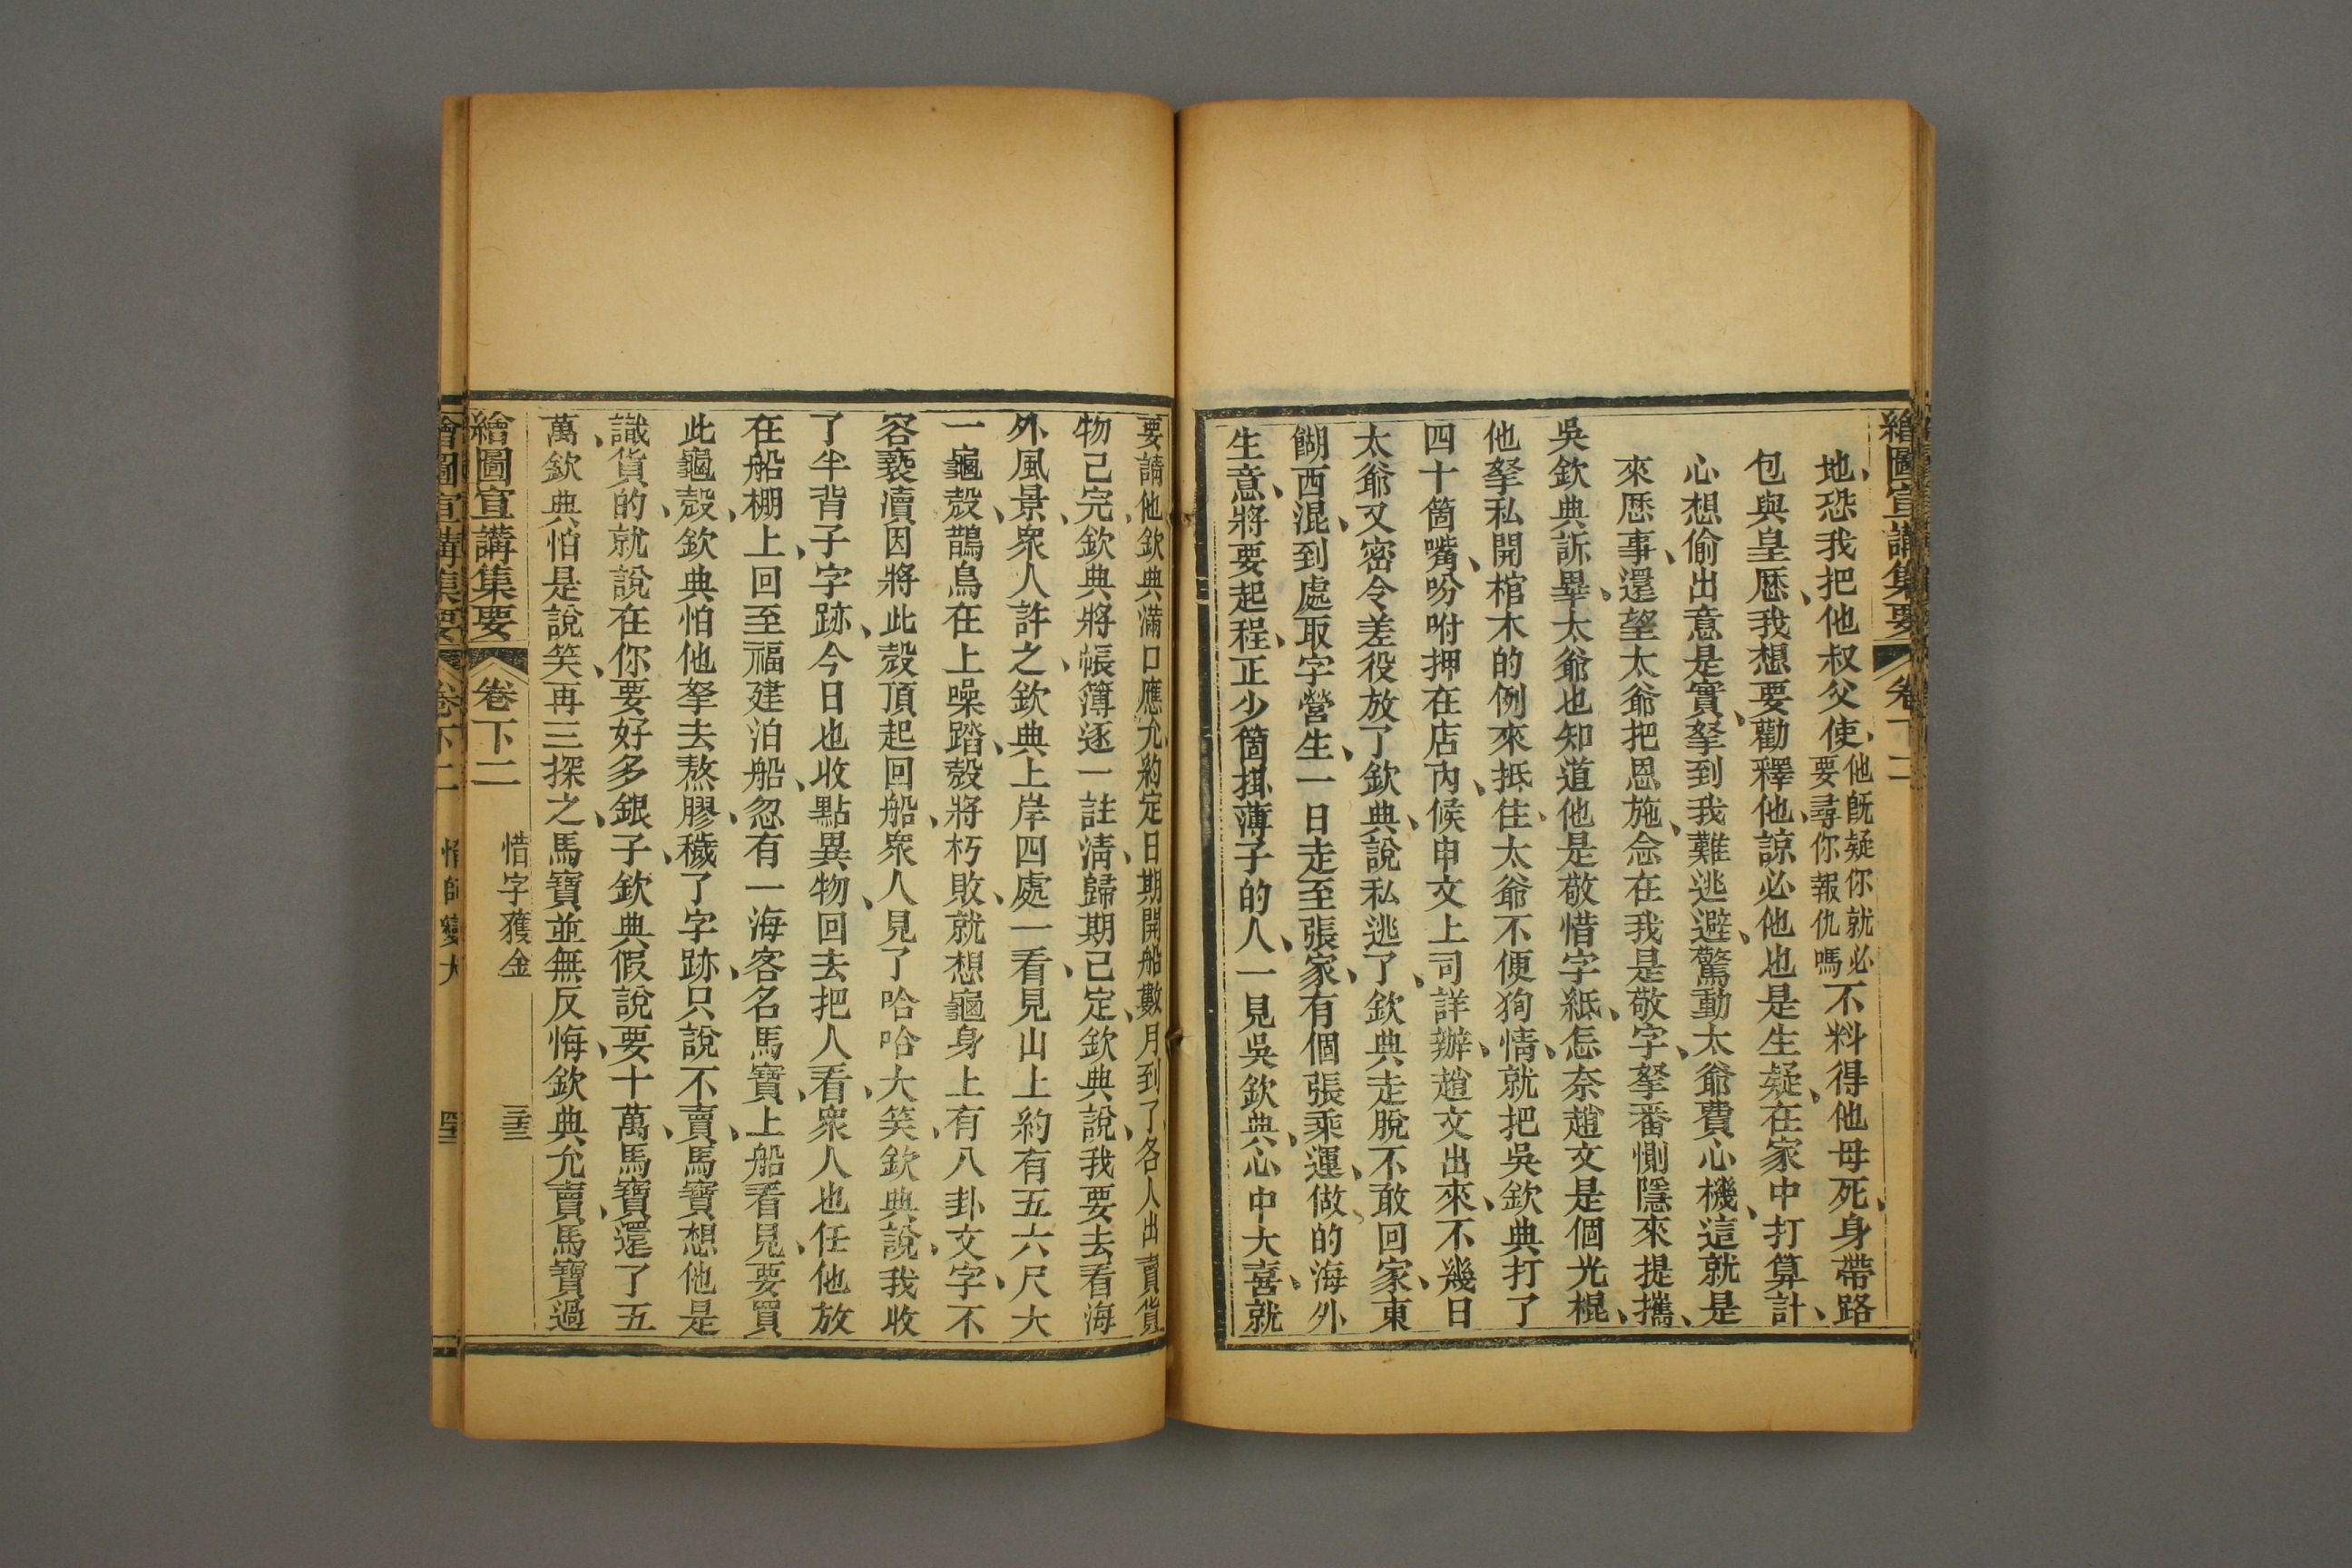 繪圖宣講集要 卷下二
地、恐我把他叔父使、他既疑你就必要尋你報仇嗎不料得他母死、身帶路
包與皇歷、我想要勸釋他、諒必他也是生疑、在家中打算計、
心想偷出意是實、拏到我難逃避、驚動太爺費心機、這就是
來歷事、還望太爺把恩施、念在我是敬字、拏番惻隱來提攜、
吳欽典訴畢、太爺也知道他是敬惜字紙、怎奈趙文是個光棍、
他拏私開棺木的例來抵住、太爺不便狥情、就把吳欽典打了
四十箇嘴、吩咐押在店內、候申文上司詳辦、趙文出來、不幾日
太爺又密令差役放了欽典、說私逃了、欽典走脫不敢回家、東
餬西混、到處取字營生、一日走至張家、有個張乘運、做的海外
生意、將要起程、正少箇掛薄子的人、一見吳欽典、心中大喜、就
要請他、欽典滿口應允、約定日期開船、數月到了、各人出賣貨
物已完、欽典將帳簿逐一註清、歸期已定、欽典說、我要去看海
外風景、衆人許之、欽典上岸四處一看、見山上約有五六尺大
一龜殼、鵲鳥在上噪踏、殼將朽敗、就想龜身上有八卦文字、不
容褻瀆、因將此殼頂起回船、衆人見了哈哈大笑、欽典說、我收
了半背子字跡、今日也收點異物、回去把人看、衆人也任他放
在船棚上、回至福建泊船、忽有一海客名馬寶、上船看見、要買
此龜殼、欽典怕他拏去熬膠、穢了字跡、只說不賣、馬寶想他是
識貨的、就說在你要好多銀子、欽典假說要十萬、馬寶還了五
萬、欽典怕是說笑、再三探之、馬寶並無反悔、欽典允賣、馬寶過
繪圖宣講集要 卷下二 惜字獲金